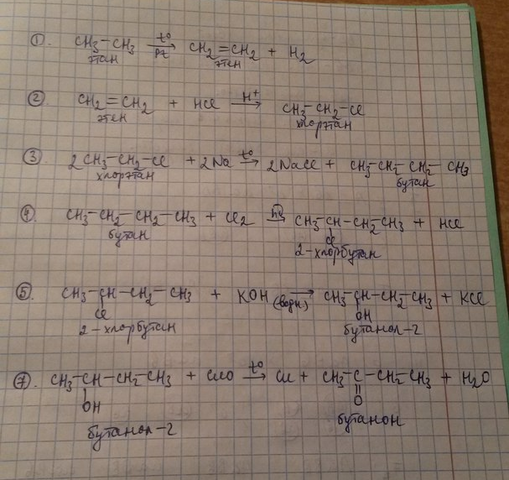 ①. CH3-CH3 t° → Pt CH2=CH2 + H2
этан этен
② CH2=CH2 + HCl H+ → CH3-CH2-Cl
этен хлорэтан
③ 2CH3-CH2-Cl + 2Na t° → 2NaCl + CH3-CH2-CH2-CH3
хлорэтан бутан
④ CH3-CH2-CH2-CH3 + Cl2 hν → CH3-CH-CH2-CH3 + HCl
бутан Cl
2-хлорбутан
⑤ CH3-CH-CH2-CH3 + KOH (водн) → CH3-CH-CH2-CH3 + KCl
Cl OH
2-хлорбутан бутанол-2
⑦. CH3-CH-CH2-CH3 + CuO t° → Cu + CH3-C-CH2-CH3 + H2O
OH O
бутанол-2 бутанон